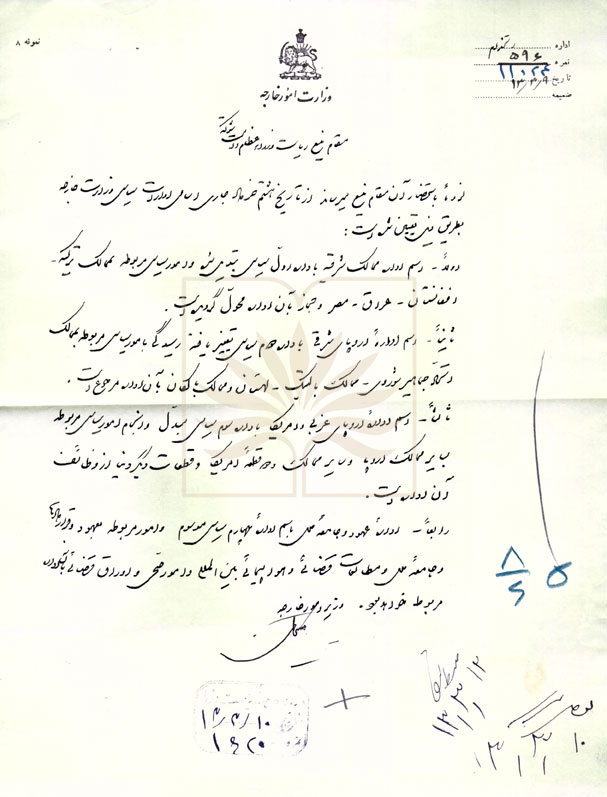 نمونه ۸
اداره تندنویسی
نمره ۵۹۶
۱۱۰۲۴
تاریخ ۱۳/۳/۹
ضمیمه
وزارت امور خارجه
مقام منیع ریاست وزراء عظام دامت شوکته
محترماً باستحضار آن مقام منیع میرساند از تاریخ هشتم خرداد ماه جاری اسامی ادارات سیاسی وزارت خارجه
بطریق ذیل تعیین شده است:
اولاً - اسم اداره ممالک شرقیه باداره اول سیاسی تبدیل میشود و امور سیاسی مربوطه بممالک ترکیه -
افغانستان - عراق - مصر و حجاز بآن اداره محول گردیده است.
ثانیاً - اسم ادارهٔ اروپای شرقی باداره دوم سیاسی تغییر یافته رسیدگی بامور سیاسی مربوطه بممالک
اتحاد جماهیر شوروی - ممالک بالتیک - لهستان و ممالک بالکان بآن اداره مرجوع است.
ثالثاً - اسم ادارهٔ اروپای غربی و امریک باداره سوم سیاسی مبدل و انجام امور سیاسی مربوطه
بسایر ممالک اروپا و سایر ممالک واقعه قطعهٔ امریک و قطعات دیگر دنیا از وظائف
آن اداره است.
رابعاً - ادارهٔ عهود و جامعهٔ ملل باسم ادارهٔ چهارم سیاسی موسوم و امور مربوطه بعهود و قراردادها
و جامعهٔ ملل و مطالعات قضائی و هواپیمائی بین المللی و امور صحی و اوراق قضائی باداره
مربوطه خواهد بود. وزیر امور خارجه
۸/۶
۱۳/۳/۱۰
۱۶۲۰
۱۳/۳/۱۲
۱۰
۱۳/۳/۱۱